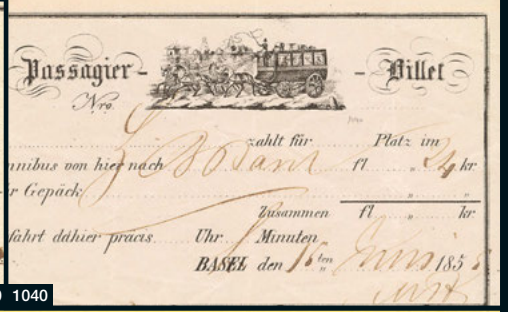 Passagier - Billet
Nro.
zahlt für Platz im
nnibus von hier nach fl „ 24 kr
r Gepäck „ „
Zusammen fl „ kr
fahrt dahier präcis Uhr Minuten
BASEL den 16 ten Juni 185
1040